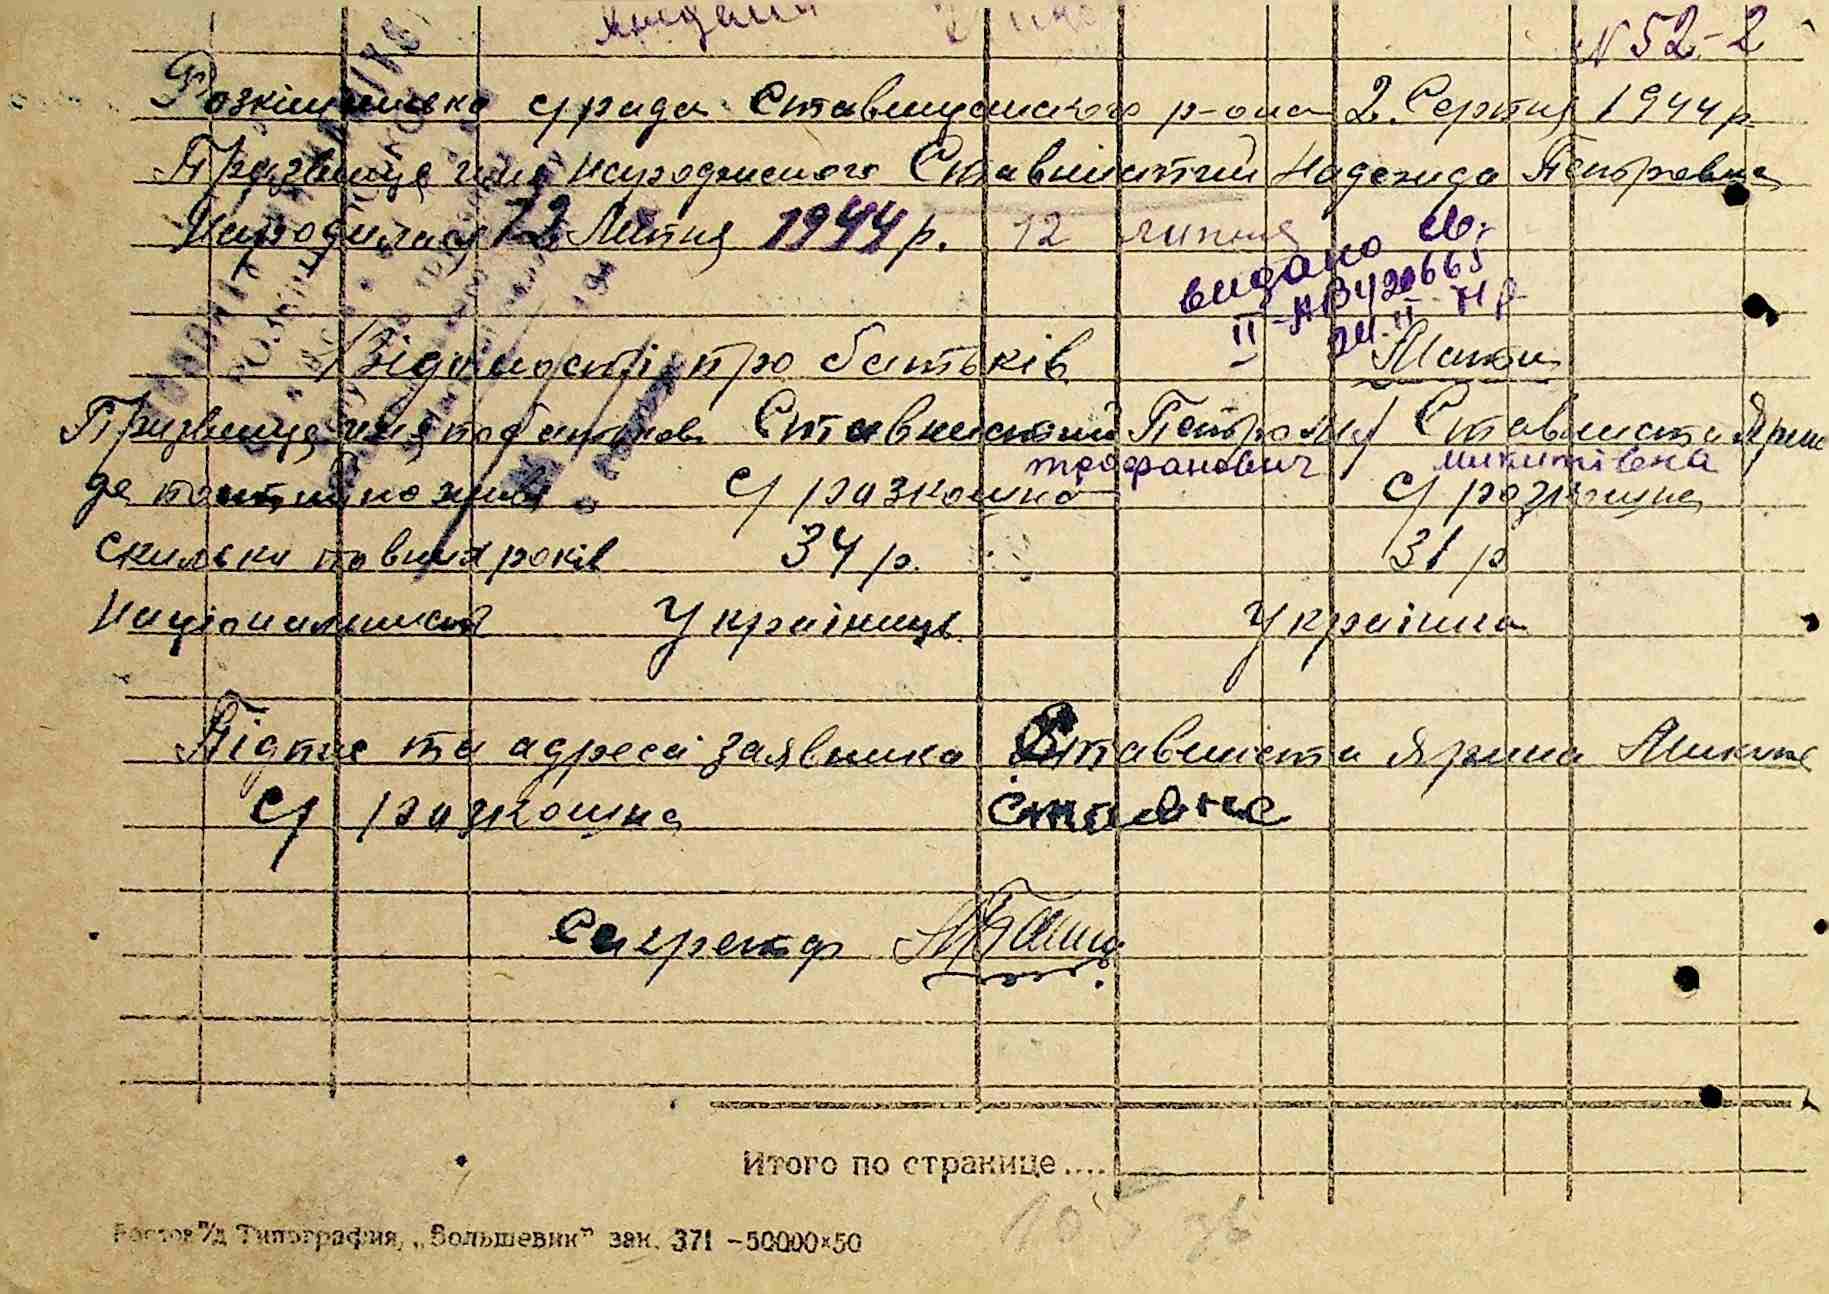 N 52-2
Розкішнянска с/рада Ставищанского р-она 2. Серпня 1944 р
Празвище імя народженого Ставнистий Надежида Петровна
Народилась 12 Липня 1944 р. 12 липня
видано св.
II-АВ 420665
24.II 71 р
Відомості про батьків Мати
Призвище, імя по батькові Ставнистий Петро М/ Ставниста Ярина
трофанович микитівна
де постійно жив с/ разкошна с/ розкошна
скилько повних років 34 р. 31 р
Національність Українець. Українка
Підпис та адреса заявника Ставниста Ярина Микит
с/ разкошна Ставнс
Секретар
Итого по странице....
105
Ростов п/д Типография, „Большевик" зак. 371 -50000×50